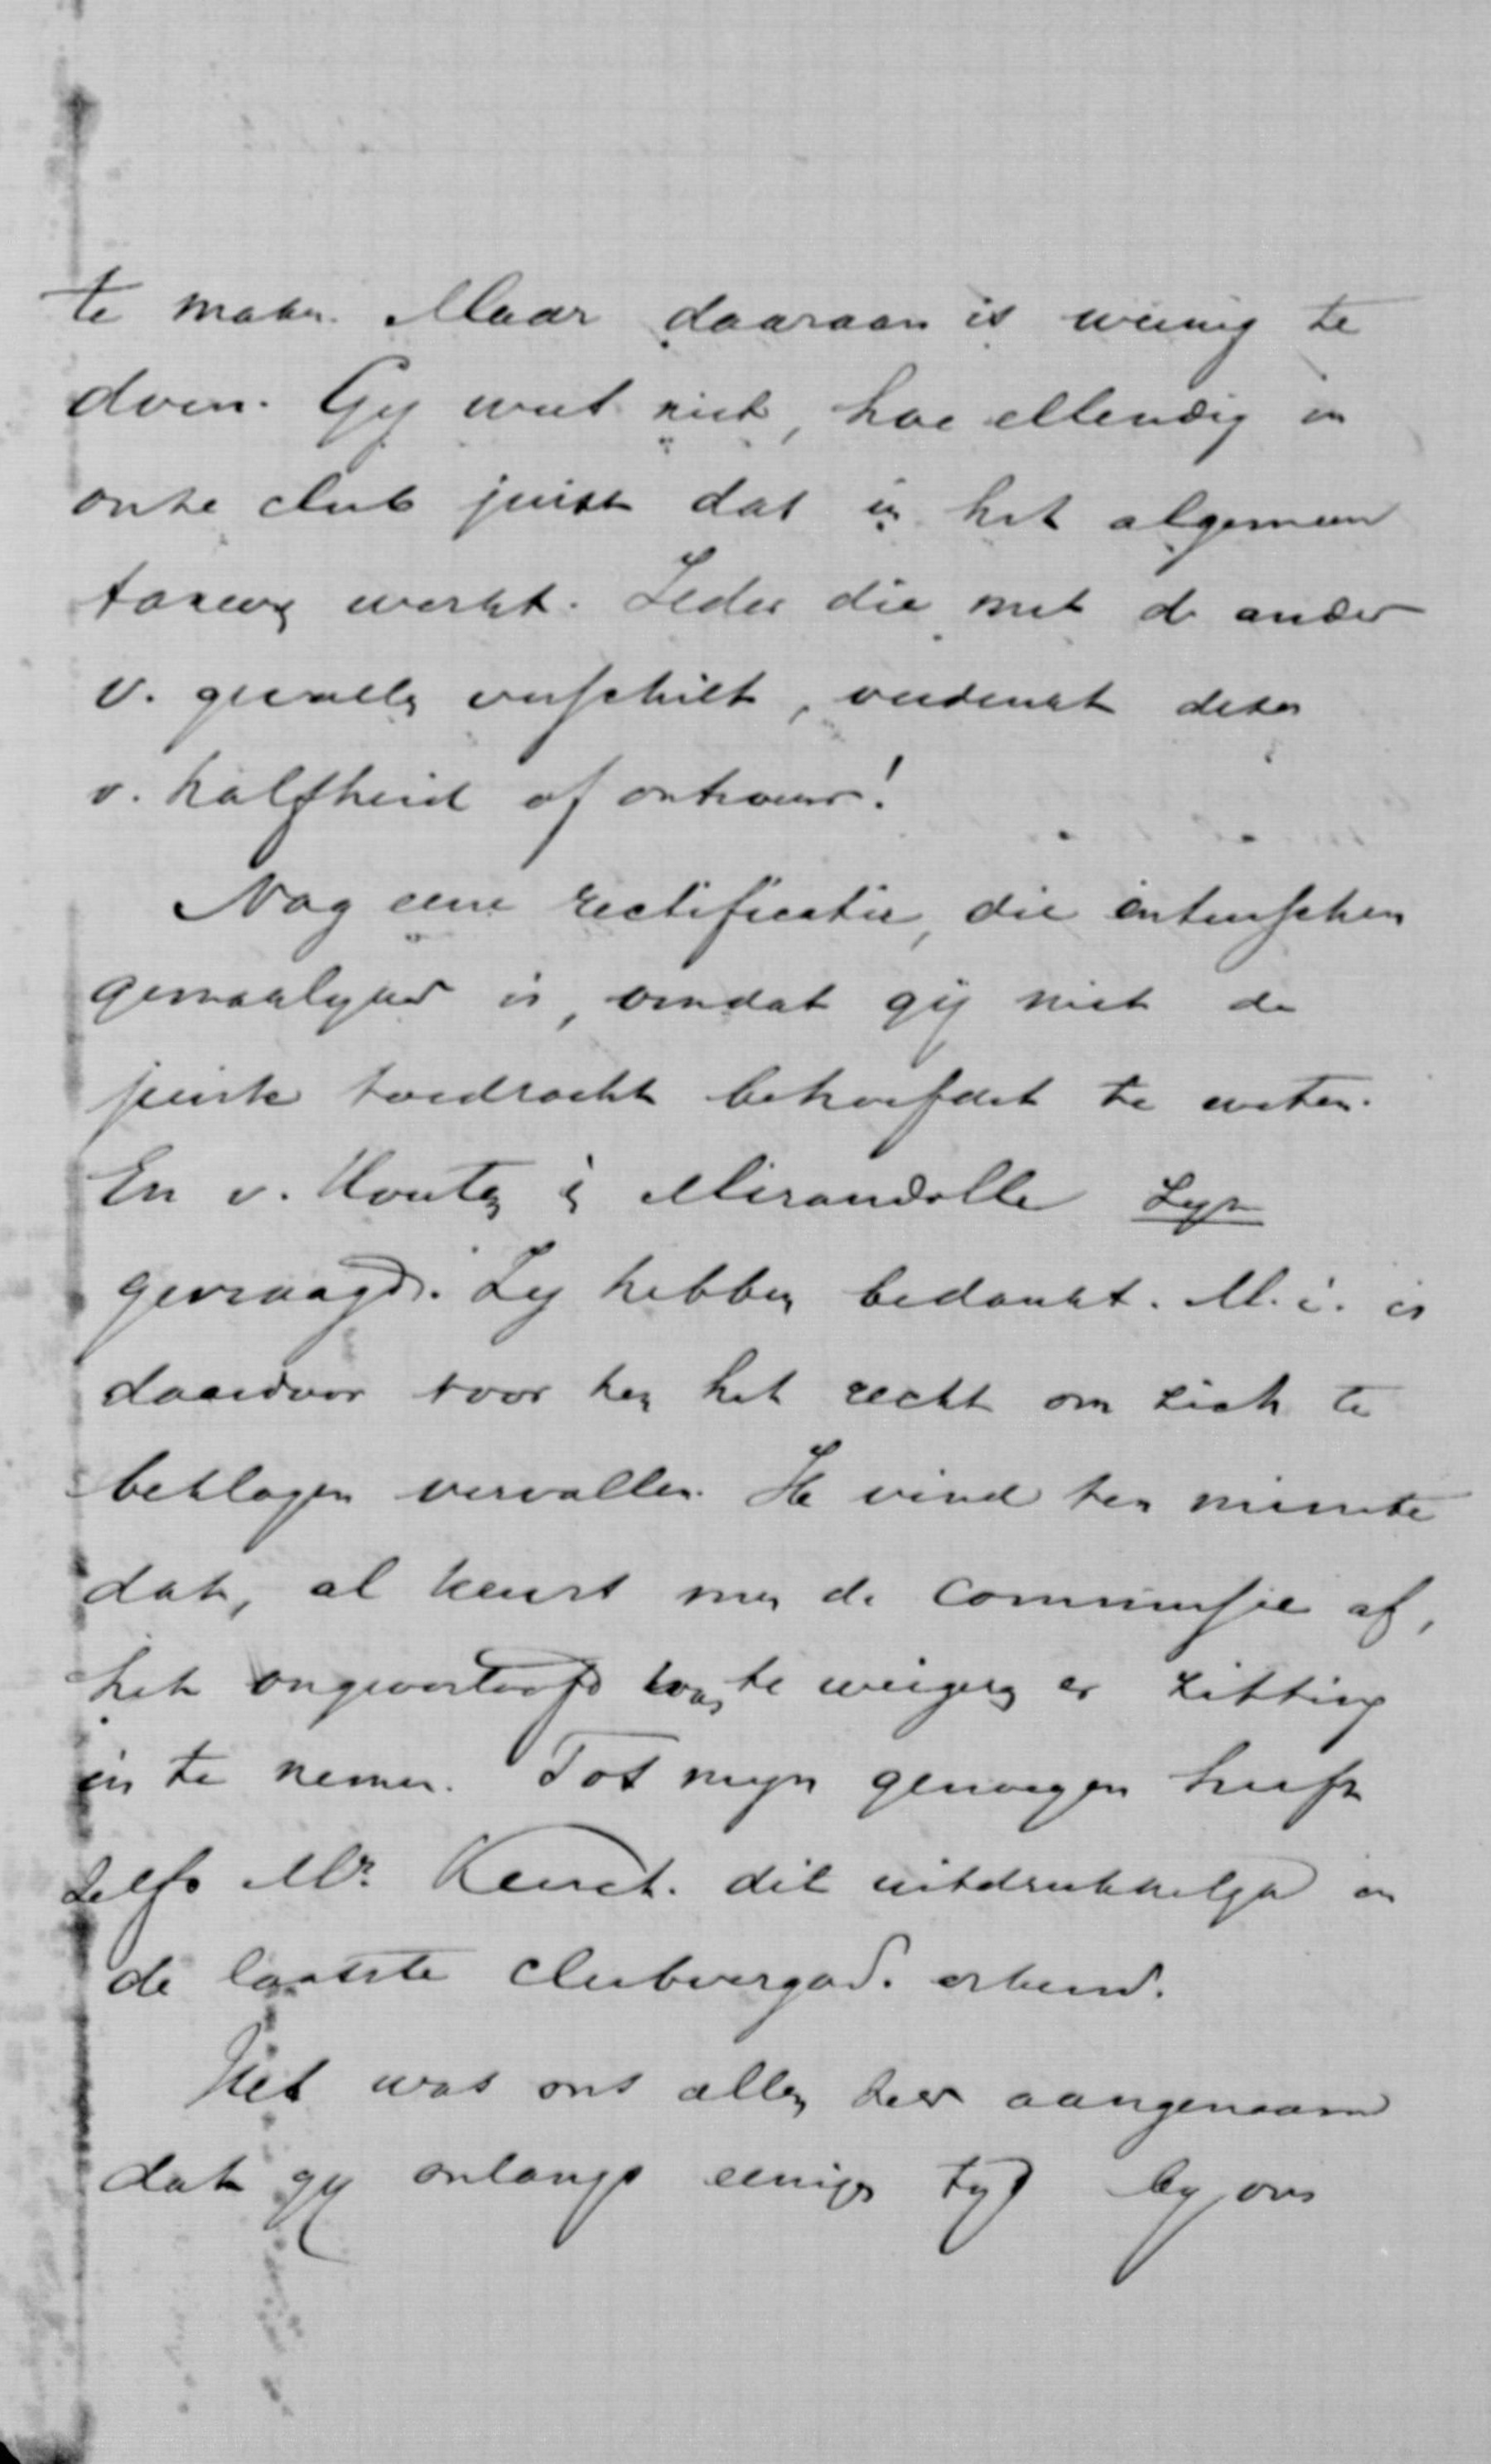 te maken. Maar daaraan is weinig te
doen. Gij weet niet, hoe ellendig in
onze club juist dat in het algemeen
werkt. Ieder die met de ander
v. gevoelen verschilt, verdenkt dezen
v. halfheid of ontrouw!
Nog eene rectificatie, die intusschen
gemakkelijk is, omdat gij niet de
juiste toedracht behoefdet te weten.
En v. Houten & Mirandolle zijn
gevraagd. Zij hebben bedankt. M.i. is
daardoor voor hen het recht om zich te
beklagen vervallen. Ik vind ten minste
dat, al keurt men de commissie af,
het ongeoorloofd was te weigeren er zitting
in te nemen. Tot mijn genoegen heeft
zelfs Mr. Keuch. dit uitdrukkelijk in
de laatste clubvergad. erkend.
Het was ons allen zeer aangenaam
dat gij onlangs eenigen tijd bij ons